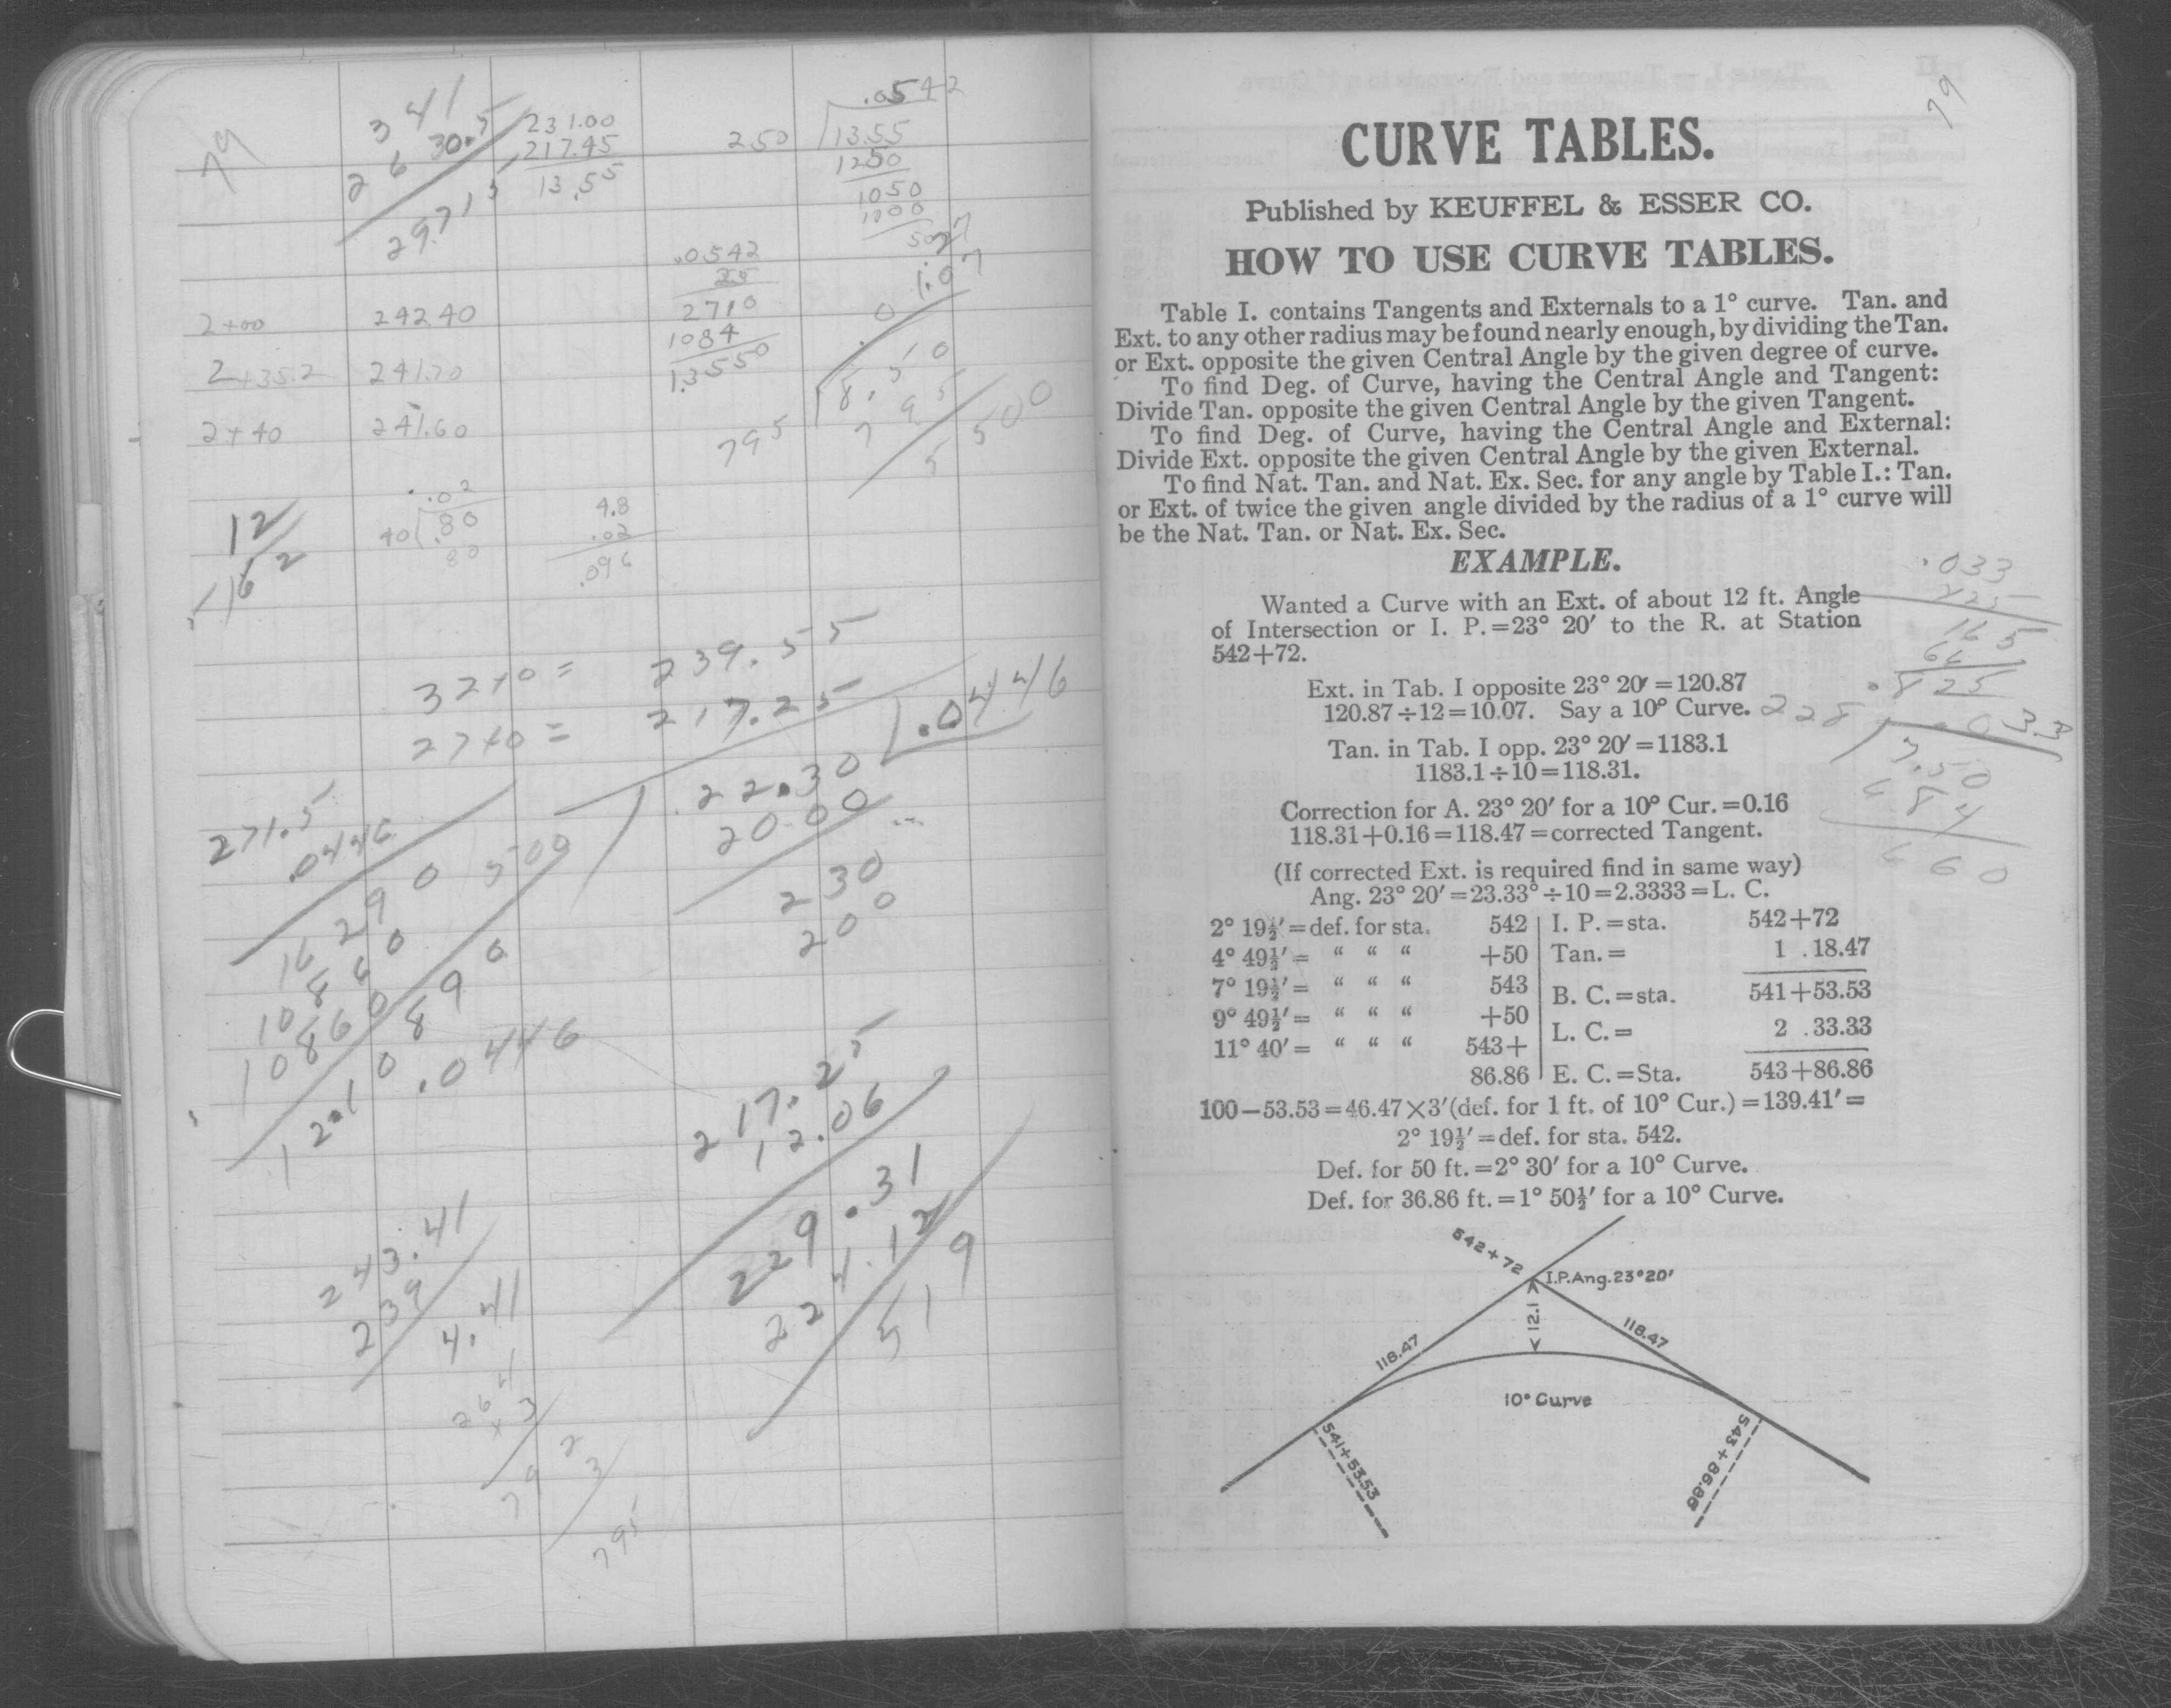 79
3 41
6 30.5
2
29.715
231.00
217.45
13.55
.0542
250 13.55
1250
1050
1000
50
.0542
25
2710
1084
1.3550
2+00 242.40
2+35.2 241.70
2+40 241.60
1.07
0
8.510
795
795
5500
12
.02
40 .80
80
4.8
.02
.096
32+0 = 239.55
27+0 = 217.25
.0446
500 22.30
20.00
230
200
271.5
.0446
16290
10860
10860
12.10890
.0446
217.25
12.06
229.31
224.12
519
243.41
239
4.41
264
3
79
23
795
79
CURVE TABLES.
Published by KEUFFEL & ESSER CO.
HOW TO USE CURVE TABLES.
Table I. contains Tangents and Externals to a 1° curve. Tan. and
Ext. to any other radius may be found nearly enough, by dividing the Tan.
or Ext. opposite the given Central Angle by the given degree of curve.
To find Deg. of Curve, having the Central Angle and Tangent:
Divide Tan. opposite the given Central Angle by the given Tangent.
To find Deg. of Curve, having the Central Angle and External:
Divide Ext. opposite the given Central Angle by the given External.
To find Nat. Tan. and Nat. Ex. Sec. for any angle by Table I.: Tan.
or Ext. of twice the given angle divided by the radius of a 1° curve will
be the Nat. Tan. or Nat. Ex. Sec.
EXAMPLE.
Wanted a Curve with an Ext. of about 12 ft. Angle
of Intersection or I. P.=23° 20′ to the R. at Station
542+72.
Ext. in Tab. I opposite 23° 20′=120.87
120.87÷12=10.07. Say a 10° Curve.
Tan. in Tab. I opp. 23° 20′=1183.1
1183.1÷10=118.31.
Correction for A. 23° 20′ for a 10° Cur.=0.16
118.31+0.16=118.47=corrected Tangent.
(If corrected Ext. is required find in same way)
Ang. 23° 20′=23.33°÷10=2.3333=L. C.
2° 19½′=def. for sta. 542 I. P.=sta. 542+72
4° 49½′= “ “ “ +50 Tan.= 1 .18.47
7° 19½′= “ “ “ 543 B. C.=sta. 541+53.53
9° 49½′= “ “ “ +50 L. C.= 2 .33.33
11° 40′= “ “ “ 543+
86.86 E. C.=Sta. 543+86.86
100−53.53=46.47×3′(def. for 1 ft. of 10° Cur.)=139.41′=
2° 19½′=def. for sta. 542.
Def. for 50 ft.=2° 30′ for a 10° Curve.
Def. for 36.86 ft.=1° 50½′ for a 10° Curve.
542+72
I.P.Ang.23°20′
12.1
118.47
118.47
10° Curve
541+53.53
543+86.86
.033
225
165
.825
228 .033
7.50
684
660